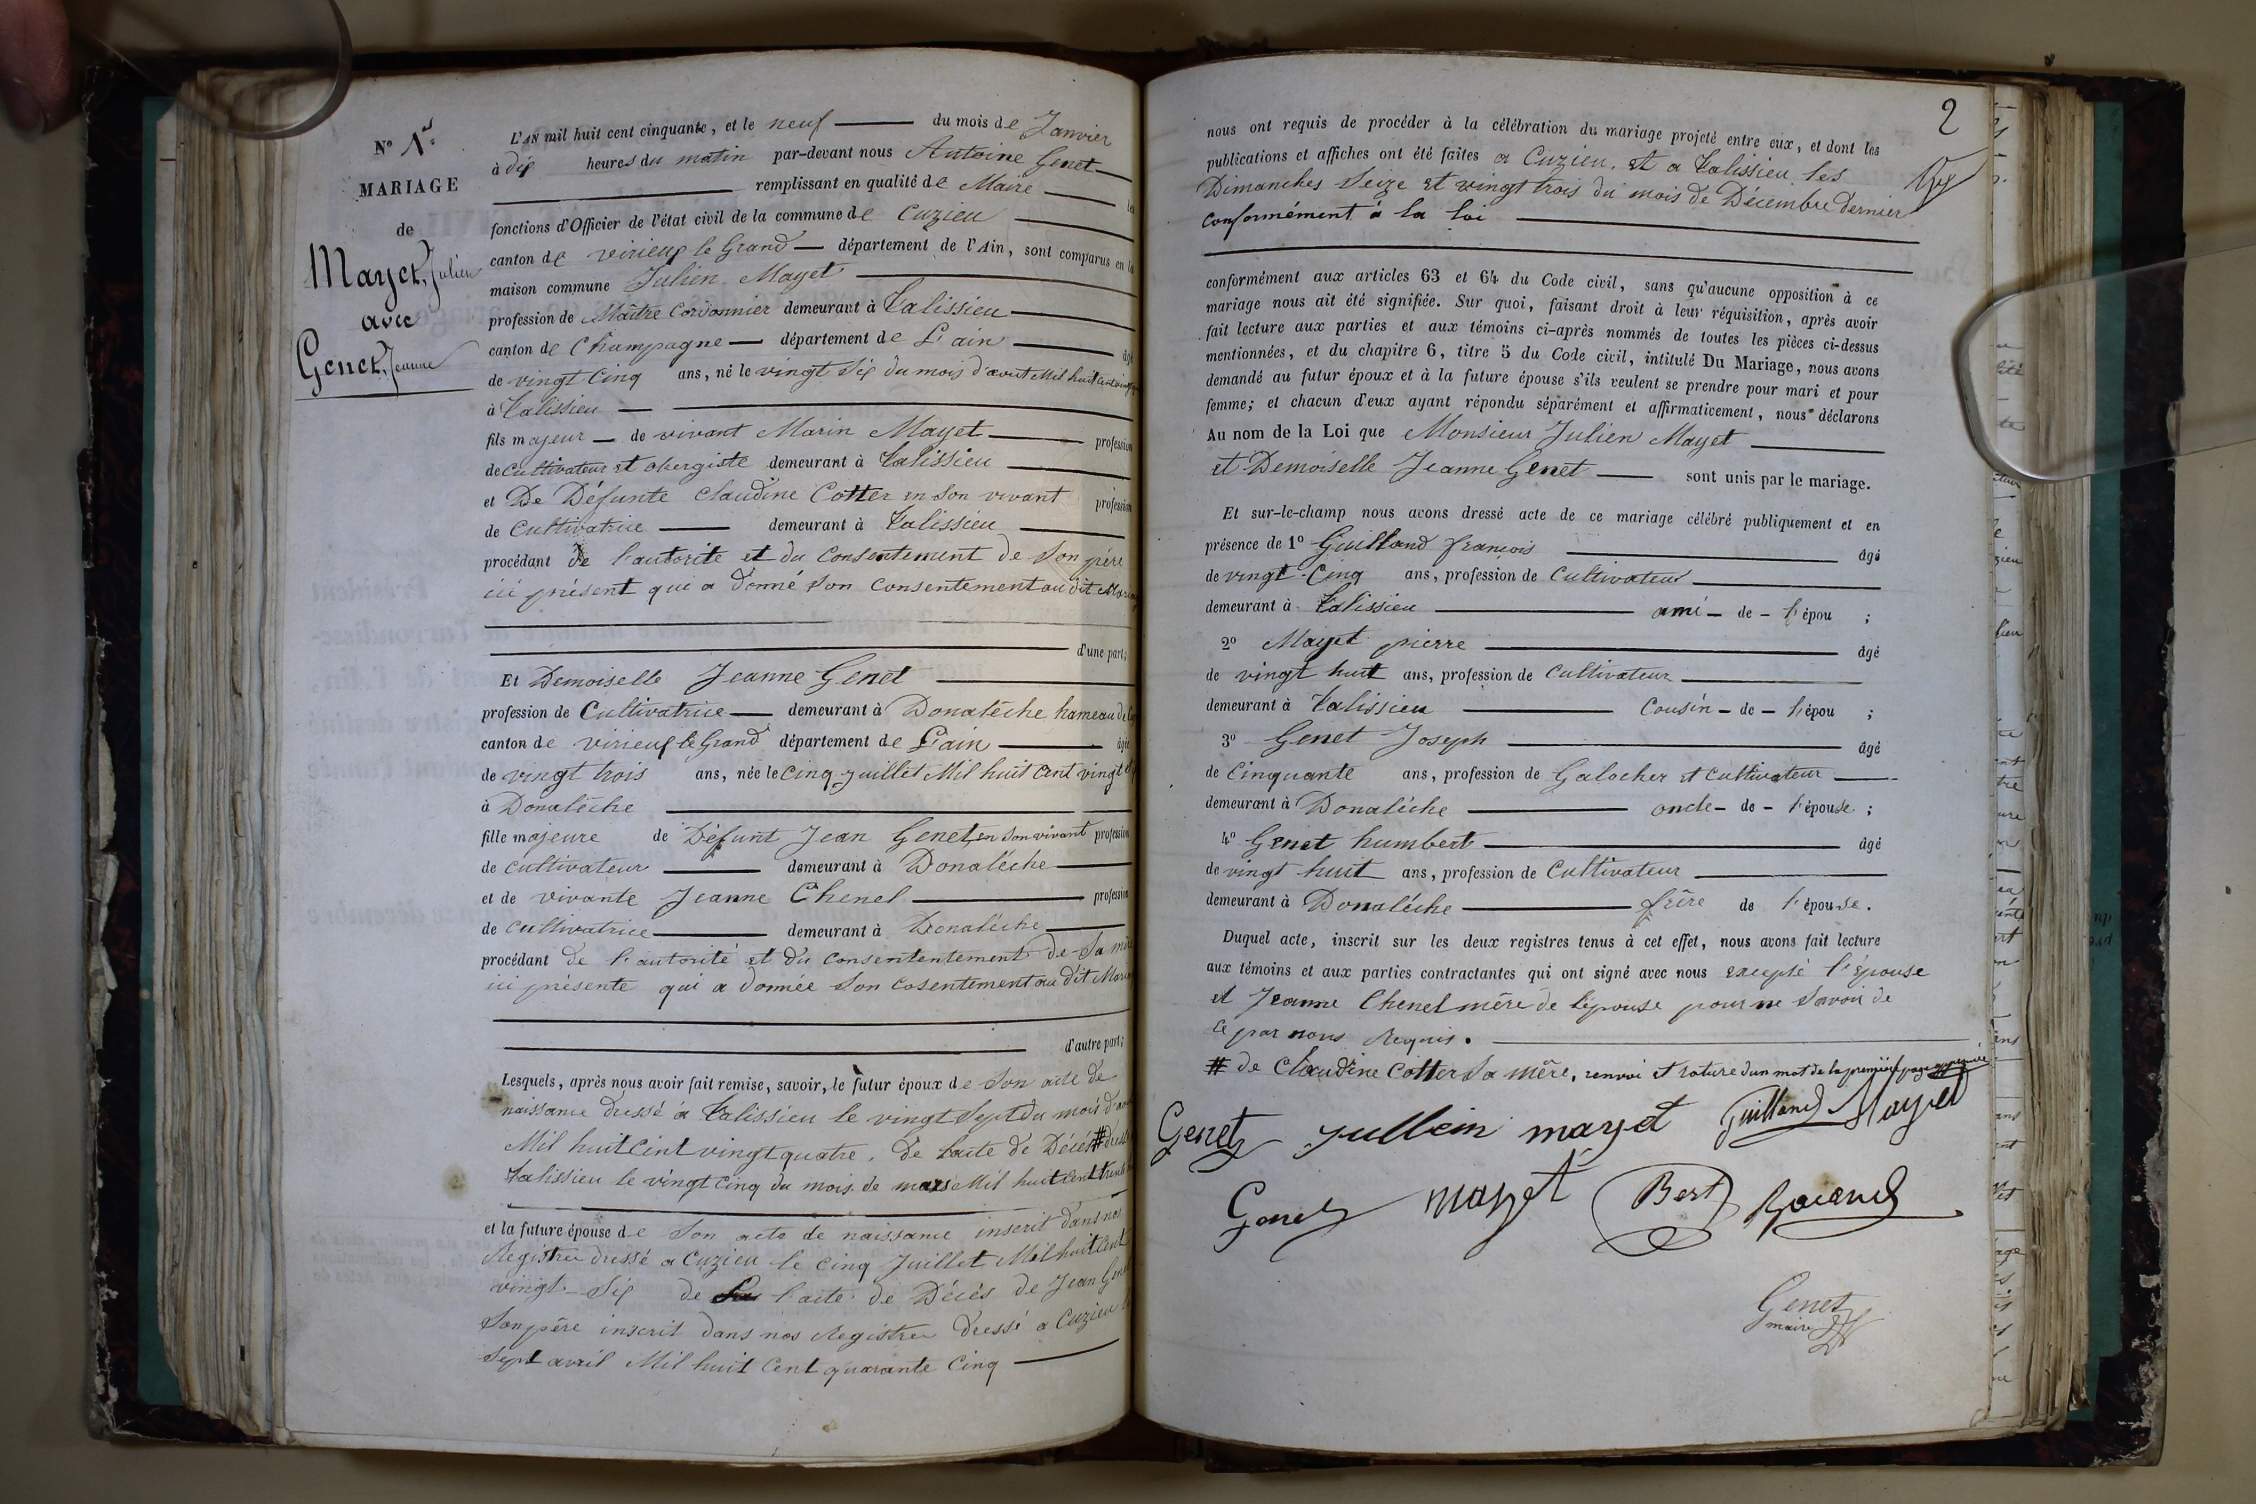 N° 1er
MARIAGE
de
Mayet, Julien
avec
Genet, Jeanne
L'AN mil huit cent cinquante, et le neuf du mois de Janvier
à dix heures du matin par-devant nous Antoine Genet
remplissant en qualité de Maire les
fonctions d'Officier de l'état civil de la commune de Cuzieu
canton de virieux le Grand département de l'Ain, sont comparus en la
maison commune Julien Mayet
profession de Maître Cordonnier demeurant à Talissieu
canton de Champagne département de L'ain âgé
de vingt Cinq ans, né le vingt Six du mois d'avut Mil huit cent vingt
à Talissieu
fils majeur de vivant Marin Mayet profession
de Cultivateur et obergiste demeurant à Talissieu
et De Défunte Claudine Cotter en son vivant profession
de Cultivatrice demeurant à Talissieu
procédant de l'autorite et du Consentement de Son père
ici présent qui a donné son consentement au dit
d'une part;
Et Demoiselle Jeanne Genet
profession de Cultivatrice demeurant à Donalèche hameau de
canton de virieux le Grand département de L'ain âgée
de vingt trois ans, née le Cinq Juillet Mil huit Cent vingt
à Donalèche
fille majeure de Défunt Jean Genet en son vivant profession
de cultivateur demeurant à Donalèche
et de vivante Jeanne Chenel profession
de Cultivatrice demeurant à Donalèche
procédant de l'autorité et du consententement de Sa mère
ici présente qui a donnée Son cosentement au dit
d'autre part;
Lesquels, après nous avoir fait remise, savoir, le futur époux de Son acte de
naissance dressé à Talissieu le vingt Sept du mois
Mil huit Cent vingt quatre, de l'acte de Décés #
Talissieu le vingt Cinq du mois de mars Mil huit Cent
et la future épouse de Son acte de naissance inscrit dans nos
Registre dressé a Cuzieu le Cinq Juillet Mil huit Cent
vingt-Six de l'acte de Décès de Jean Genet
Son père inscrit dans nos Registre dressé a Cuzieu
Sept avril Mil huit Cent quarante Cinq
2
nous ont requis de procéder à la célébration du mariage projeté entre eux, et dont les
publications et affiches ont été faites a Cuzieu, et a Talissieu les
Dimanches Seize et vingt trois du mois de Décembre dernier
conformément à la loi
conformément aux articles 63 et 64 du Code civil, sans qu'aucune opposition à ce
mariage nous ait été signifiée. Sur quoi, faisant droit à leur réquisition, après avoir
fait lecture aux parties et aux témoins ci-après nommés de toutes les pièces ci-dessus
mentionnées, et du chapitre 6, titre 5 du Code civil, intitulé Du Mariage, nous avons
demandé au futur époux et à la future épouse s'ils veulent se prendre pour mari et pour
femme; et chacun d'eux ayant répondu séparément et affirmativement, nous déclarons
Au nom de la Loi que Monsieur Julien Mayet
et Demoiselle Jeanne Genet sont unis par le mariage.
Et sur-le-champ nous avons dressé acte de ce mariage célébré publiquement et en
présence de 1° Guilland françois âgé
de vingt-Cinq ans, profession de Cultivateur
demeurant à Talissieu ami - de - l'épou ;
2° Mayet pierre âgé
de vingt huit ans, profession de Cultivateur
demeurant à Talissieu Cousin - de - l'épou ;
3° Genet Joseph âgé
de Cinquante ans, profession de Galocher et Cultivateur
demeurant à Donalèche oncle - de - l'épouse ;
4° Genet humbert âgé
de vingt huit ans, profession de Cultivateur
demeurant à Donalèche frère de l'épouse.
Duquel acte, inscrit sur les deux registres tenus à cet effet, nous avons fait lecture
aux témoins et aux parties contractantes qui ont signé avec nous excepté l'épouse
et Jeanne Chenel mère de l'épouse pour ne savoir de
ce par nous Requis.
# de Claudine Cotter Sa mère, renvoi et rature d'un mot de la première page
Genet Jullien mayet Guilland Mayet
Genet mayet Bert
Genet
maire